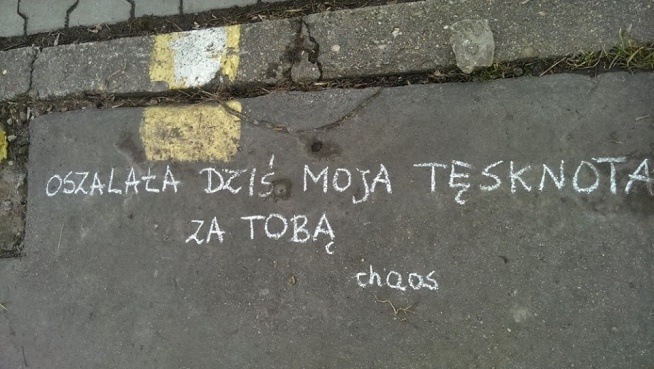 OSZALAŁA DZIŚ MOJA TĘSKNOTA
ZA TOBĄ
chaos